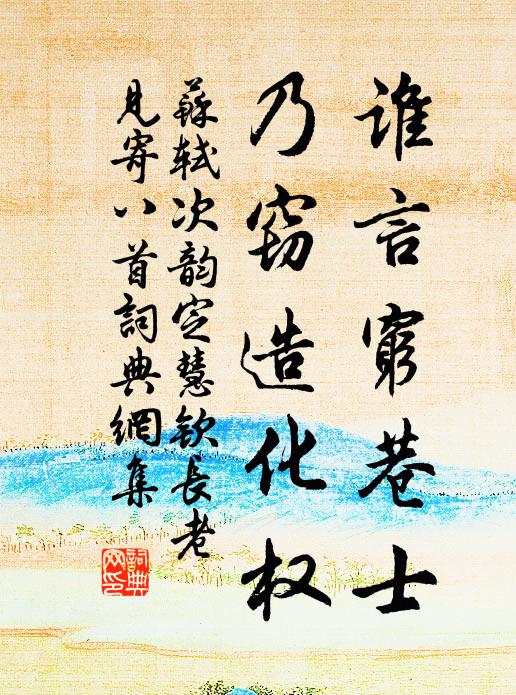 谁言穷巷士
乃窃造化权
蘇轼次韵定慧钦長老
見寄八首詞典網集
詞典
网印